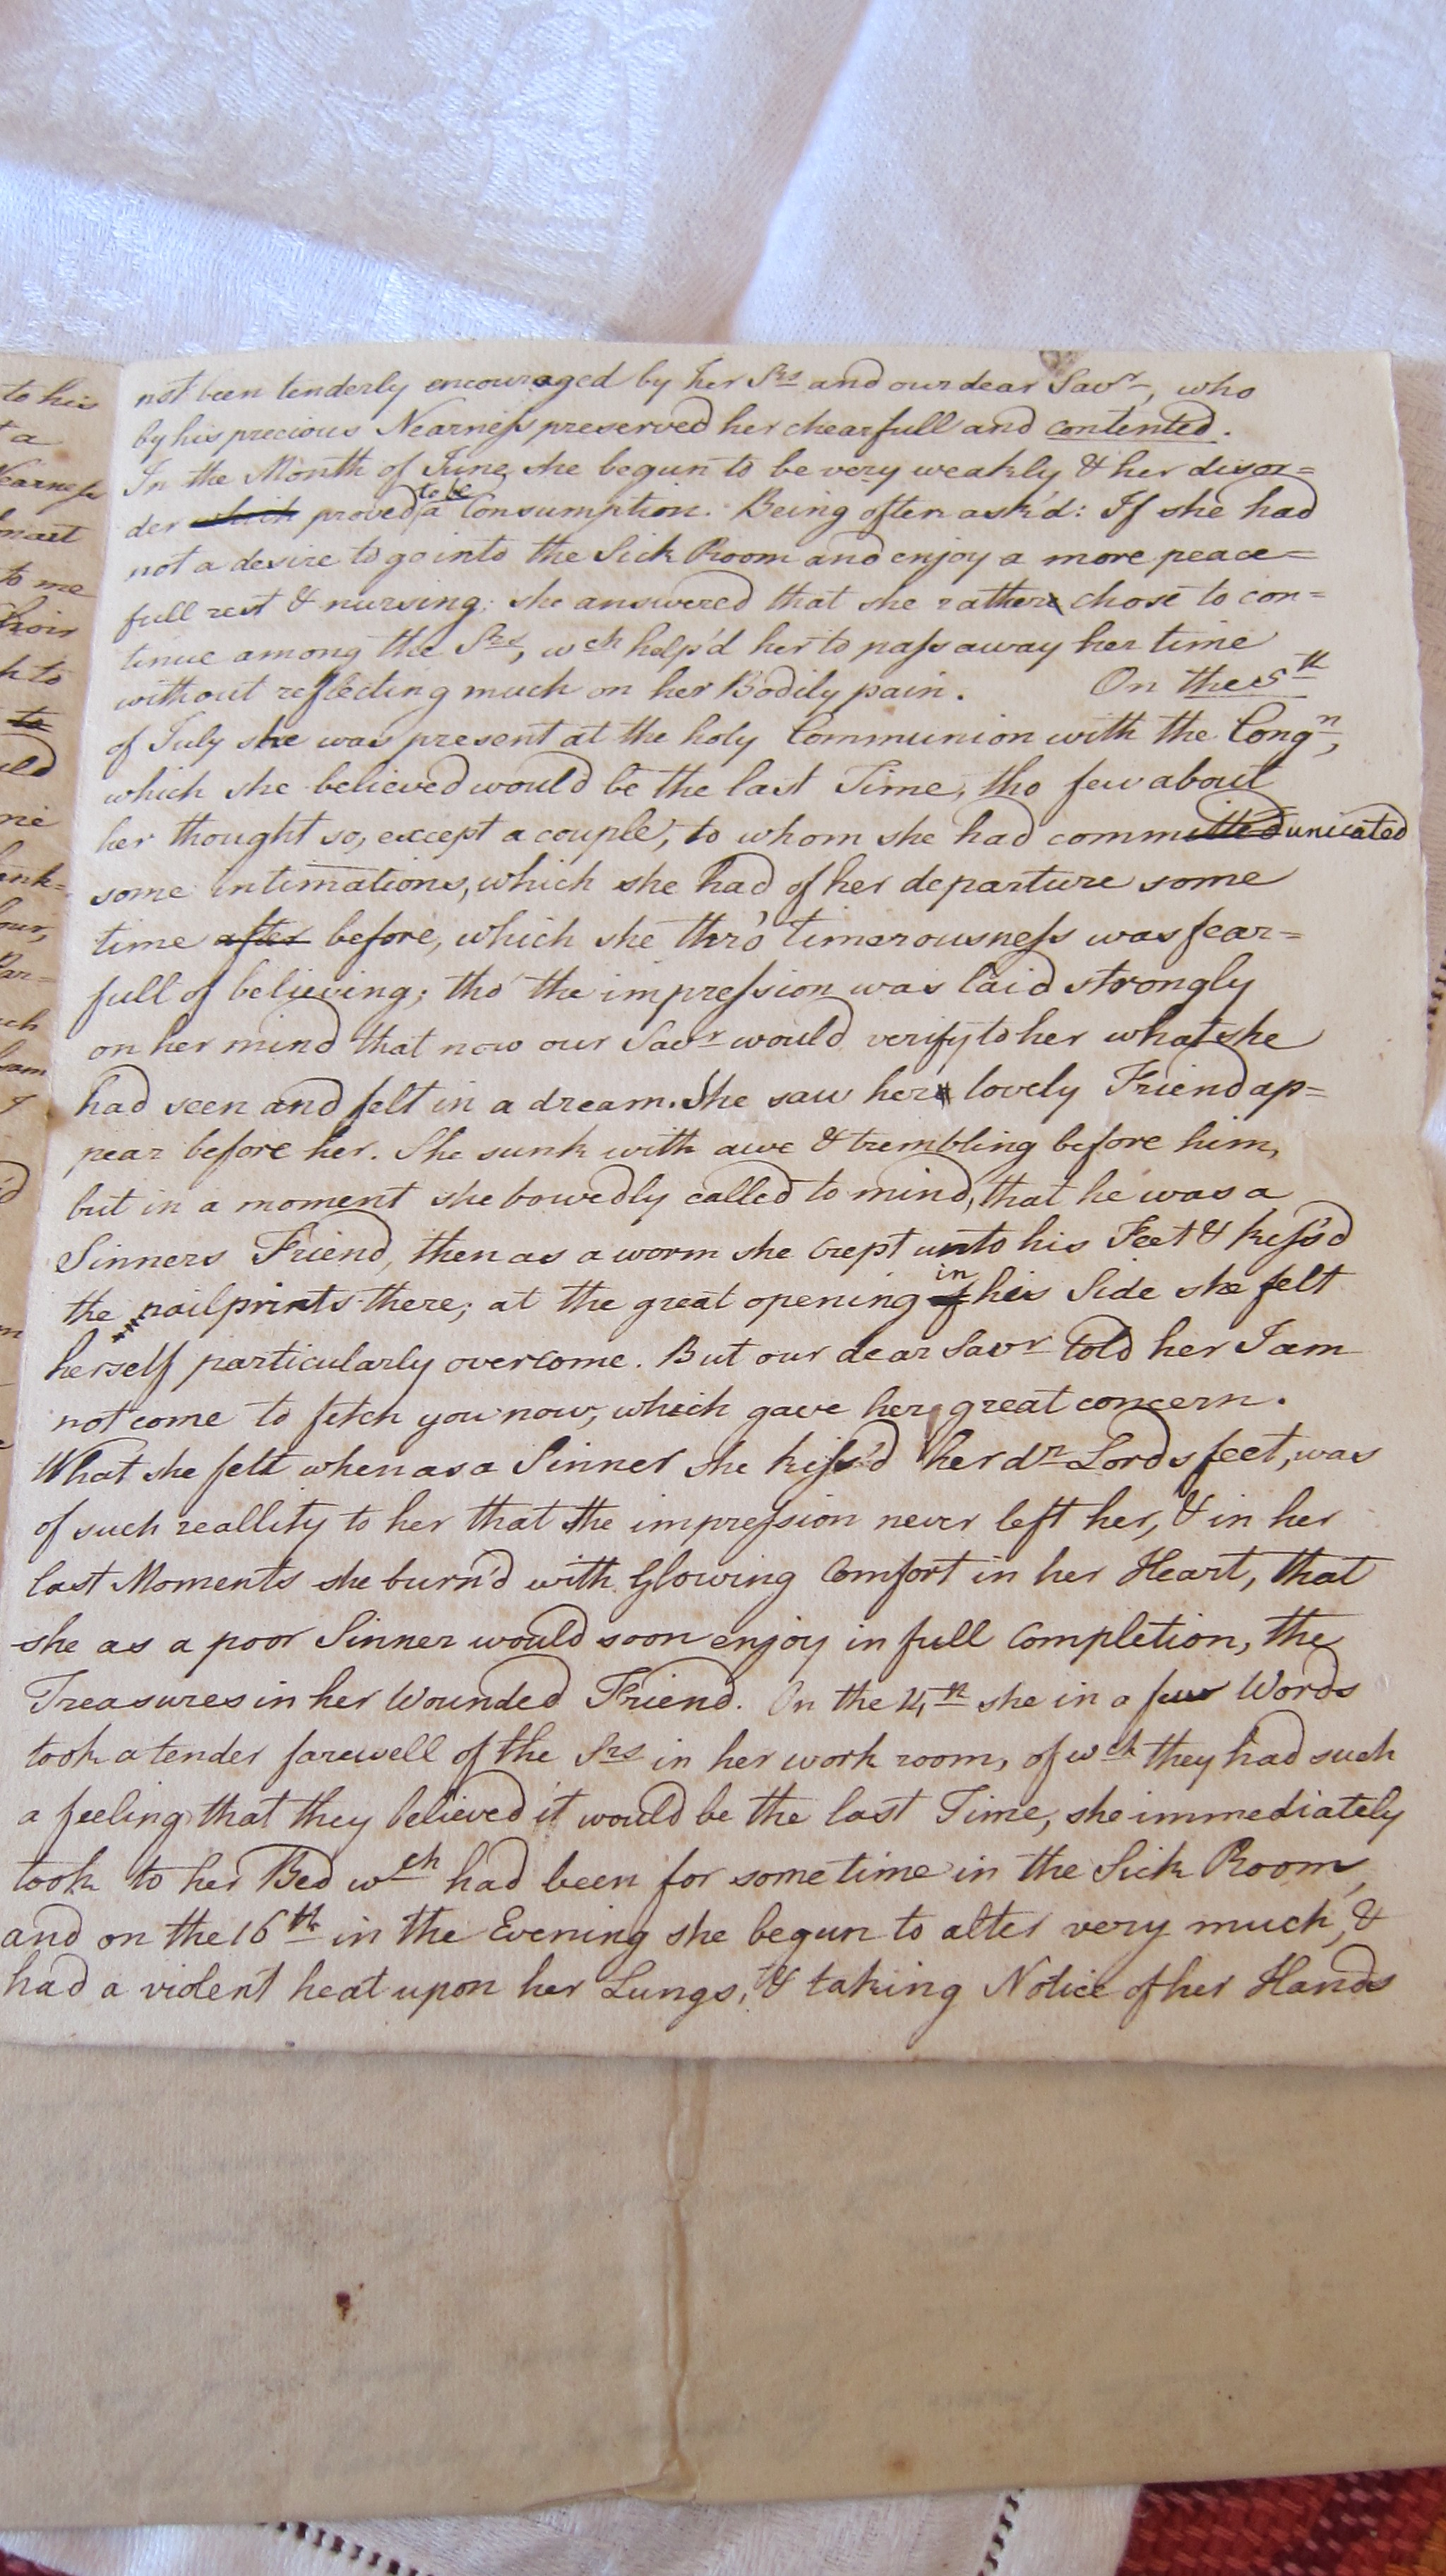 not been tenderly encouraged by her Srs and our dear Savr, who
by his precious Nearness preserved her chearfull and contented.
In the Month of June she begun to be very weakly & her disor=
der which proved to be a Consumption. Being often ask'd: If she had
not a desire to go into the Sick Room and enjoy a more peace=
full rest & nursing; she answered that she rather chose to con=
tinue among the Srs, wch help'd her to pass away her time
without reflecting much on her Bodily pain. On the 5th
of July she was present at the holy Communion with the Congn,
which she believed would be the last Time, tho few about
her thought so, except a couple, to whom she had committed unicated
some intimations, which she had of her departure some
time after before, which she thro' timorousness was fear=
full of believing; tho' the impression was laid strongly
on her mind that now our Savr would verify to her what she
had seen and felt in a dream. She saw her lovely Friend ap=
pear before her. She sunk with awe & trembling before him,
but in a moment she bowedly called to mind, that he was a
Sinners Friend, then as a worm she crept unto his Feet & kiss'd
the nailprints there; at the great opening of in his Side she felt
herself particularly overcome. But our dear Savr told her I am
not come to fetch you now, which gave her great concern.
What she felt when as a Sinner she kiss'd her dr Lords feet, was
of such reallity to her that the impression never left her, & in her
last Moments she burn'd with Glowing Comfort in her Heart, that
she as a poor Sinner would soon enjoy in full Completion, the
Treasures in her Wounded Friend. On the 14th she in a few Words
took a tender farewell of the Srs in her work room, of wch they had such
a feeling that they believed it would be the last Time, she immediately
took to her Bed wch had been for some time in the Sick Room,
and on the 16th in the Evening she begun to alter very much, &
had a violent heat upon her Lungs, & taking Notice of her Hands
to his
a
Nearness
to me
Choir
to
to